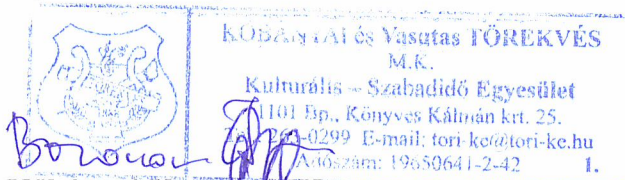 KŐBÁNYAI és Vasutas TÖREKVÉS
M.K.
Kulturális – Szabadidő Egyesület
1101 Bp., Könyves Kálmán krt. 25.
-0299 E-mail: tori-ke@tori-ke.hu
Adószám: 19650641-2-42 1.